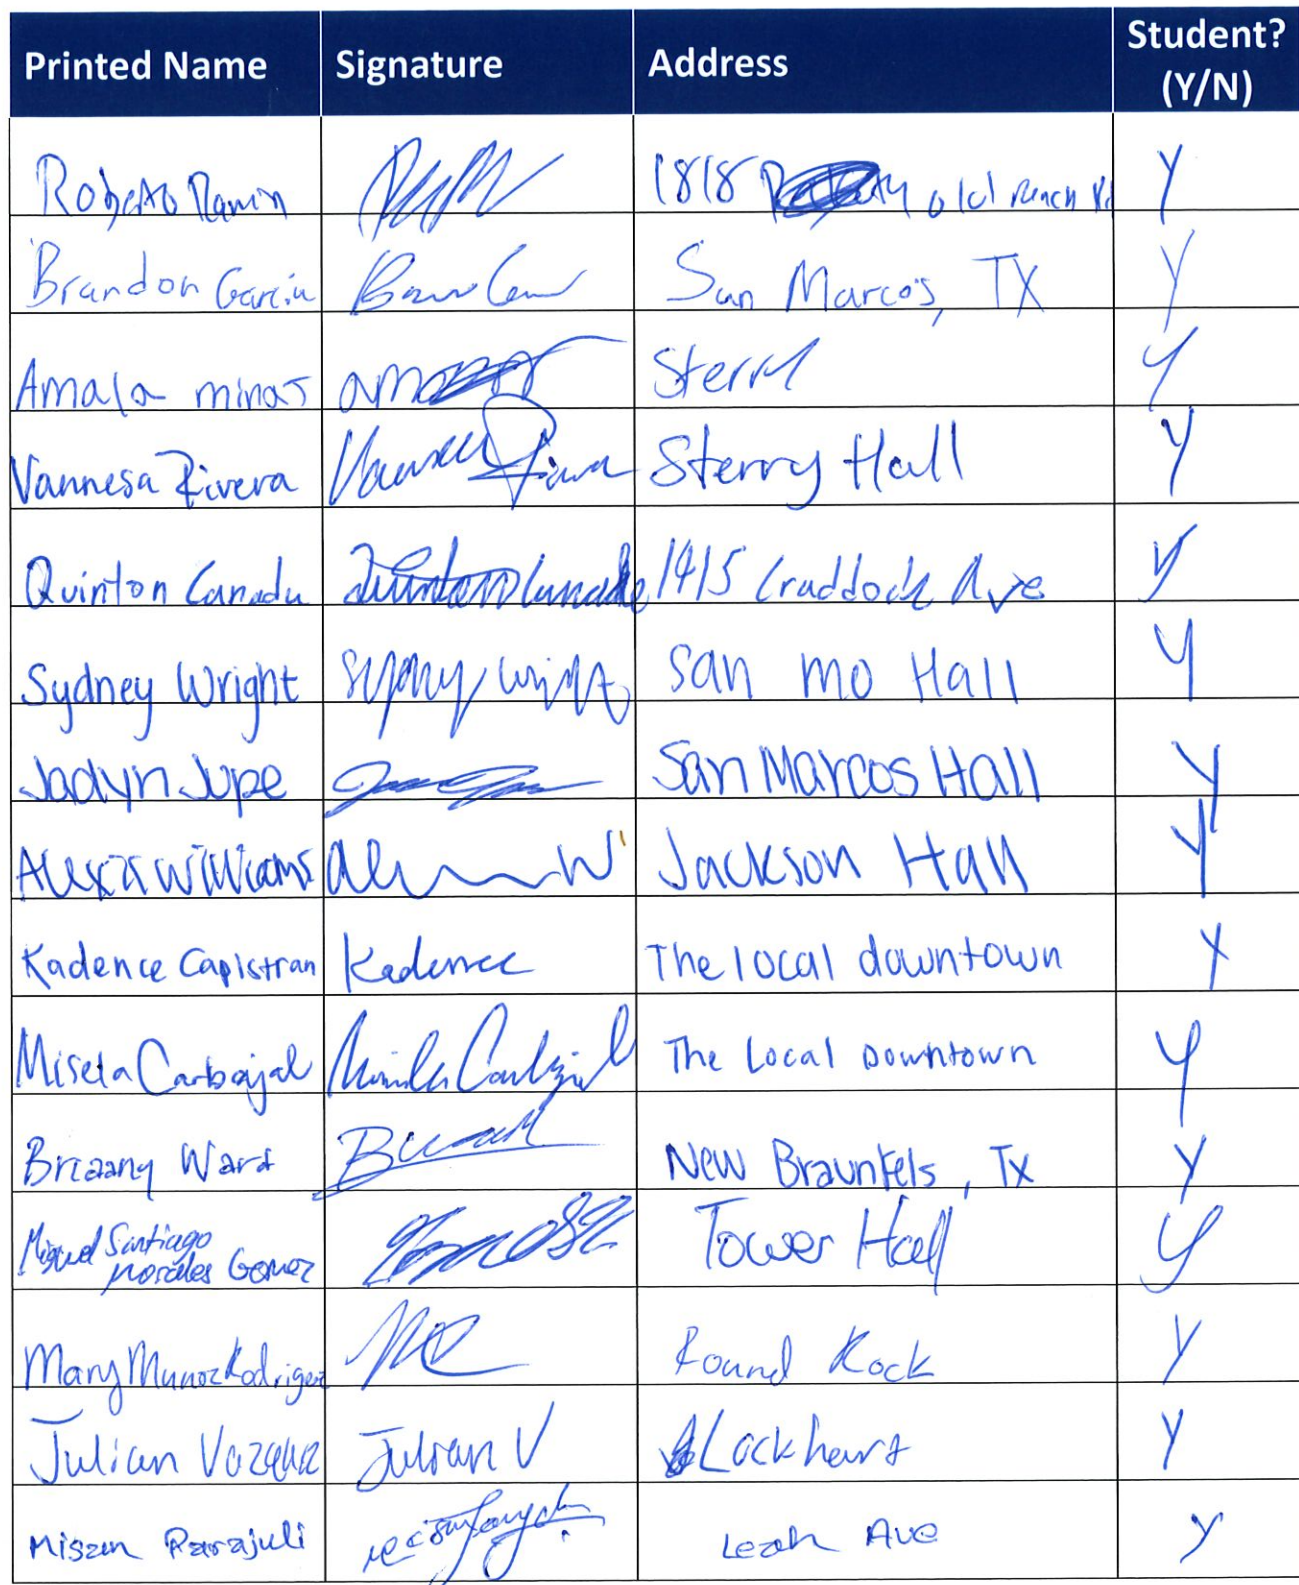 Printed Name Signature Address Student? (Y/N)
Roberto 1818 old Ranch Rd Y
Brandon Garcia San Marcos, TX Y
Amala minas Sterry Y
Vannesa Rivera Vannesa Rivera Sterry Hall Y
Quinton Canadu Quinton Canada 1415 Craddock Ave Y
Sydney Wright Sydney Wright San mo Hall Y
Jadyn Jupe San Marcos Hall Y
Alexia Williams Jackson Hall Y
Kadence Capistran Kadence The local downtown Y
Misela Carbajal The Local Downtown Y
Ward New Braunfels, Tx Y
Miguel Santiago
Morales Gomez Tower Hall Y
Mary Munoz Rodriguez Round Rock Y
Julian Vazquez Julian V Lockhart Y
Misan Parajuli Leah Ave Y